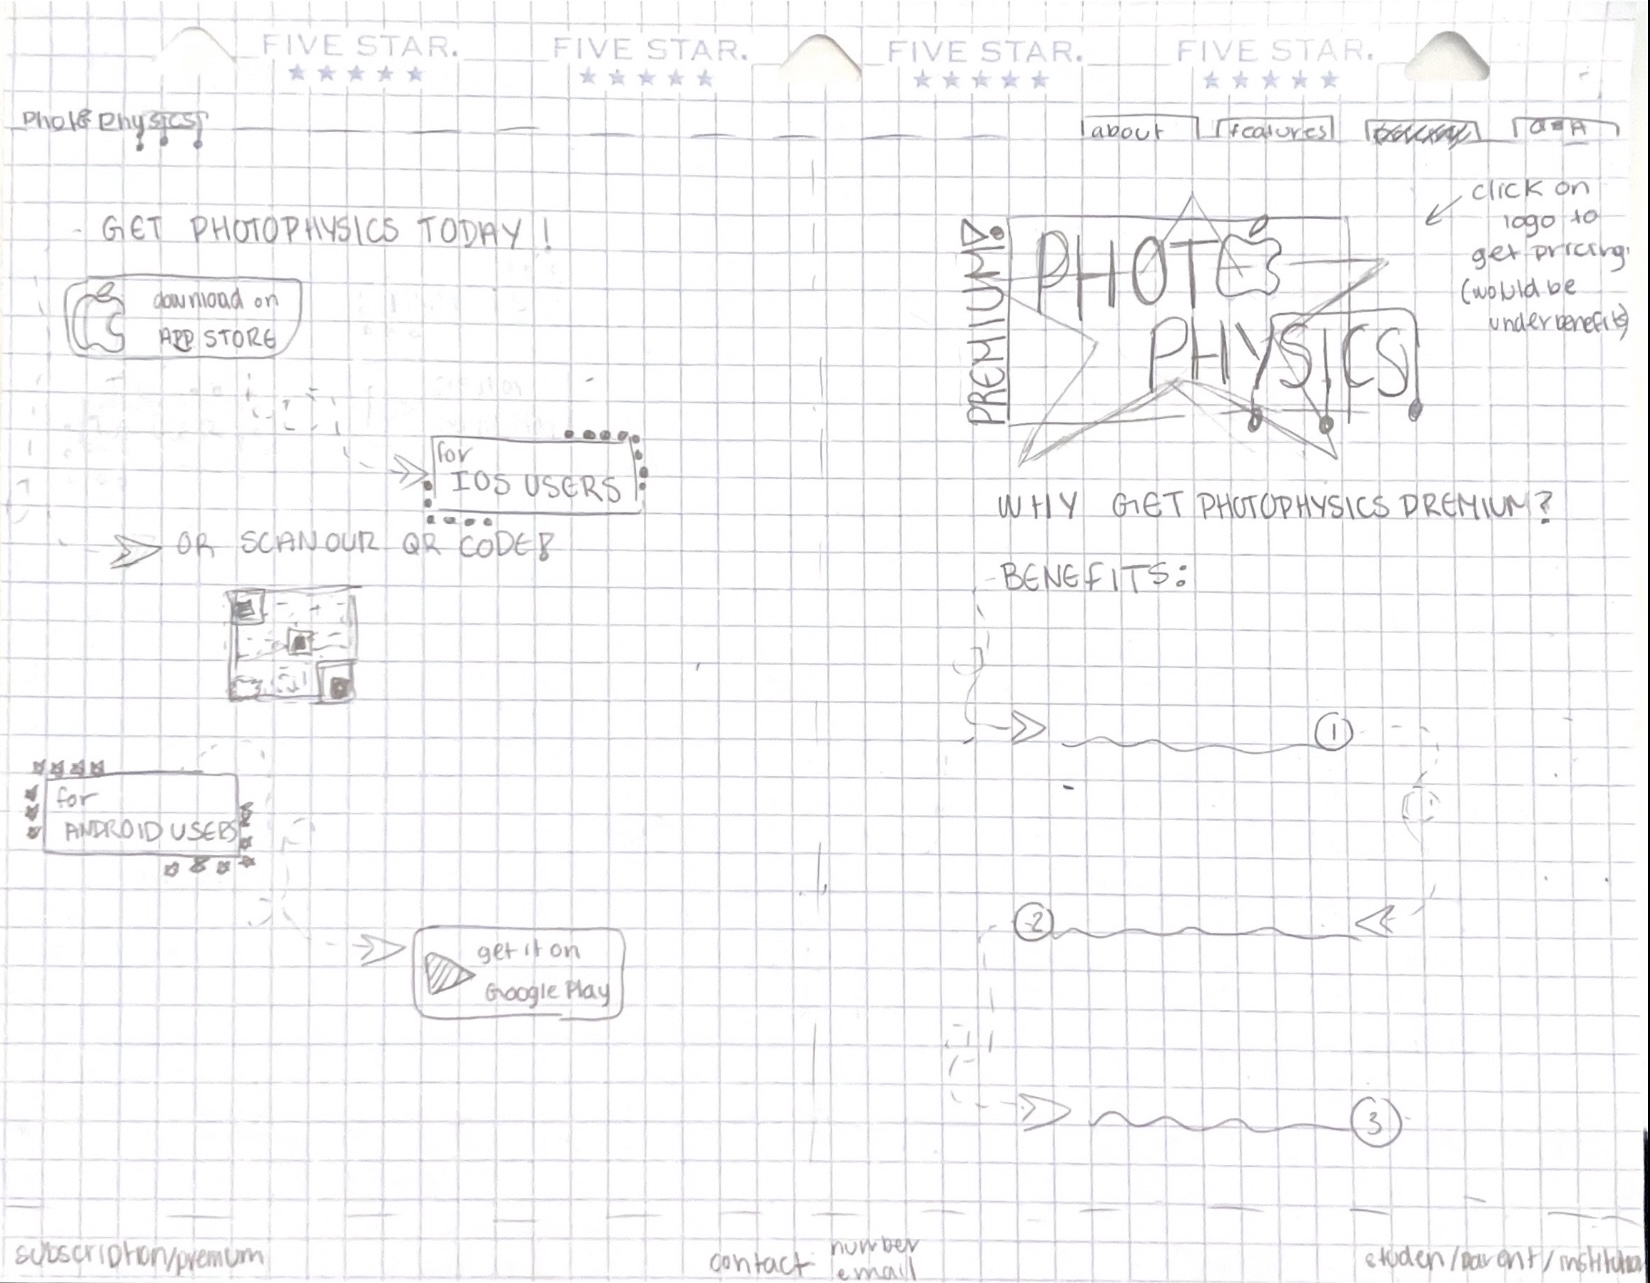 FIVE STAR.
FIVE STAR.
FIVE STAR.
FIVE STAR.
Photo Physics
about
features
Q&A
GET PHOTOPHYSICS TODAY!
download on
APP STORE
for
IOS USERS
OR SCAN OUR QR CODE!
for
ANDROID USERS
get it on
Google Play
click on
logo to
get pricing
(would be
under benefits)
PREMIUM!
PHOTO
PHYSICS
WHY GET PHOTOPHYSICS PREMIUM?
BENEFITS:
1
2
3
subscription/premium
contact: number
email
studen/parent/institution